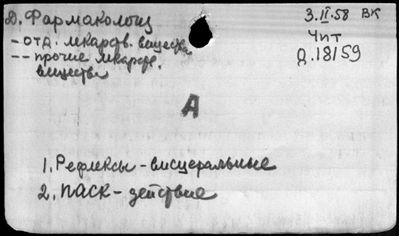 D. Фармаколоиз
3.II.58 ВК
- отд. лекарств. вещества
Чит
-- прочие лекарств.
Д.18159
вещества
А
1. Рефлексы - висцеральные
2. ПАСК - действие